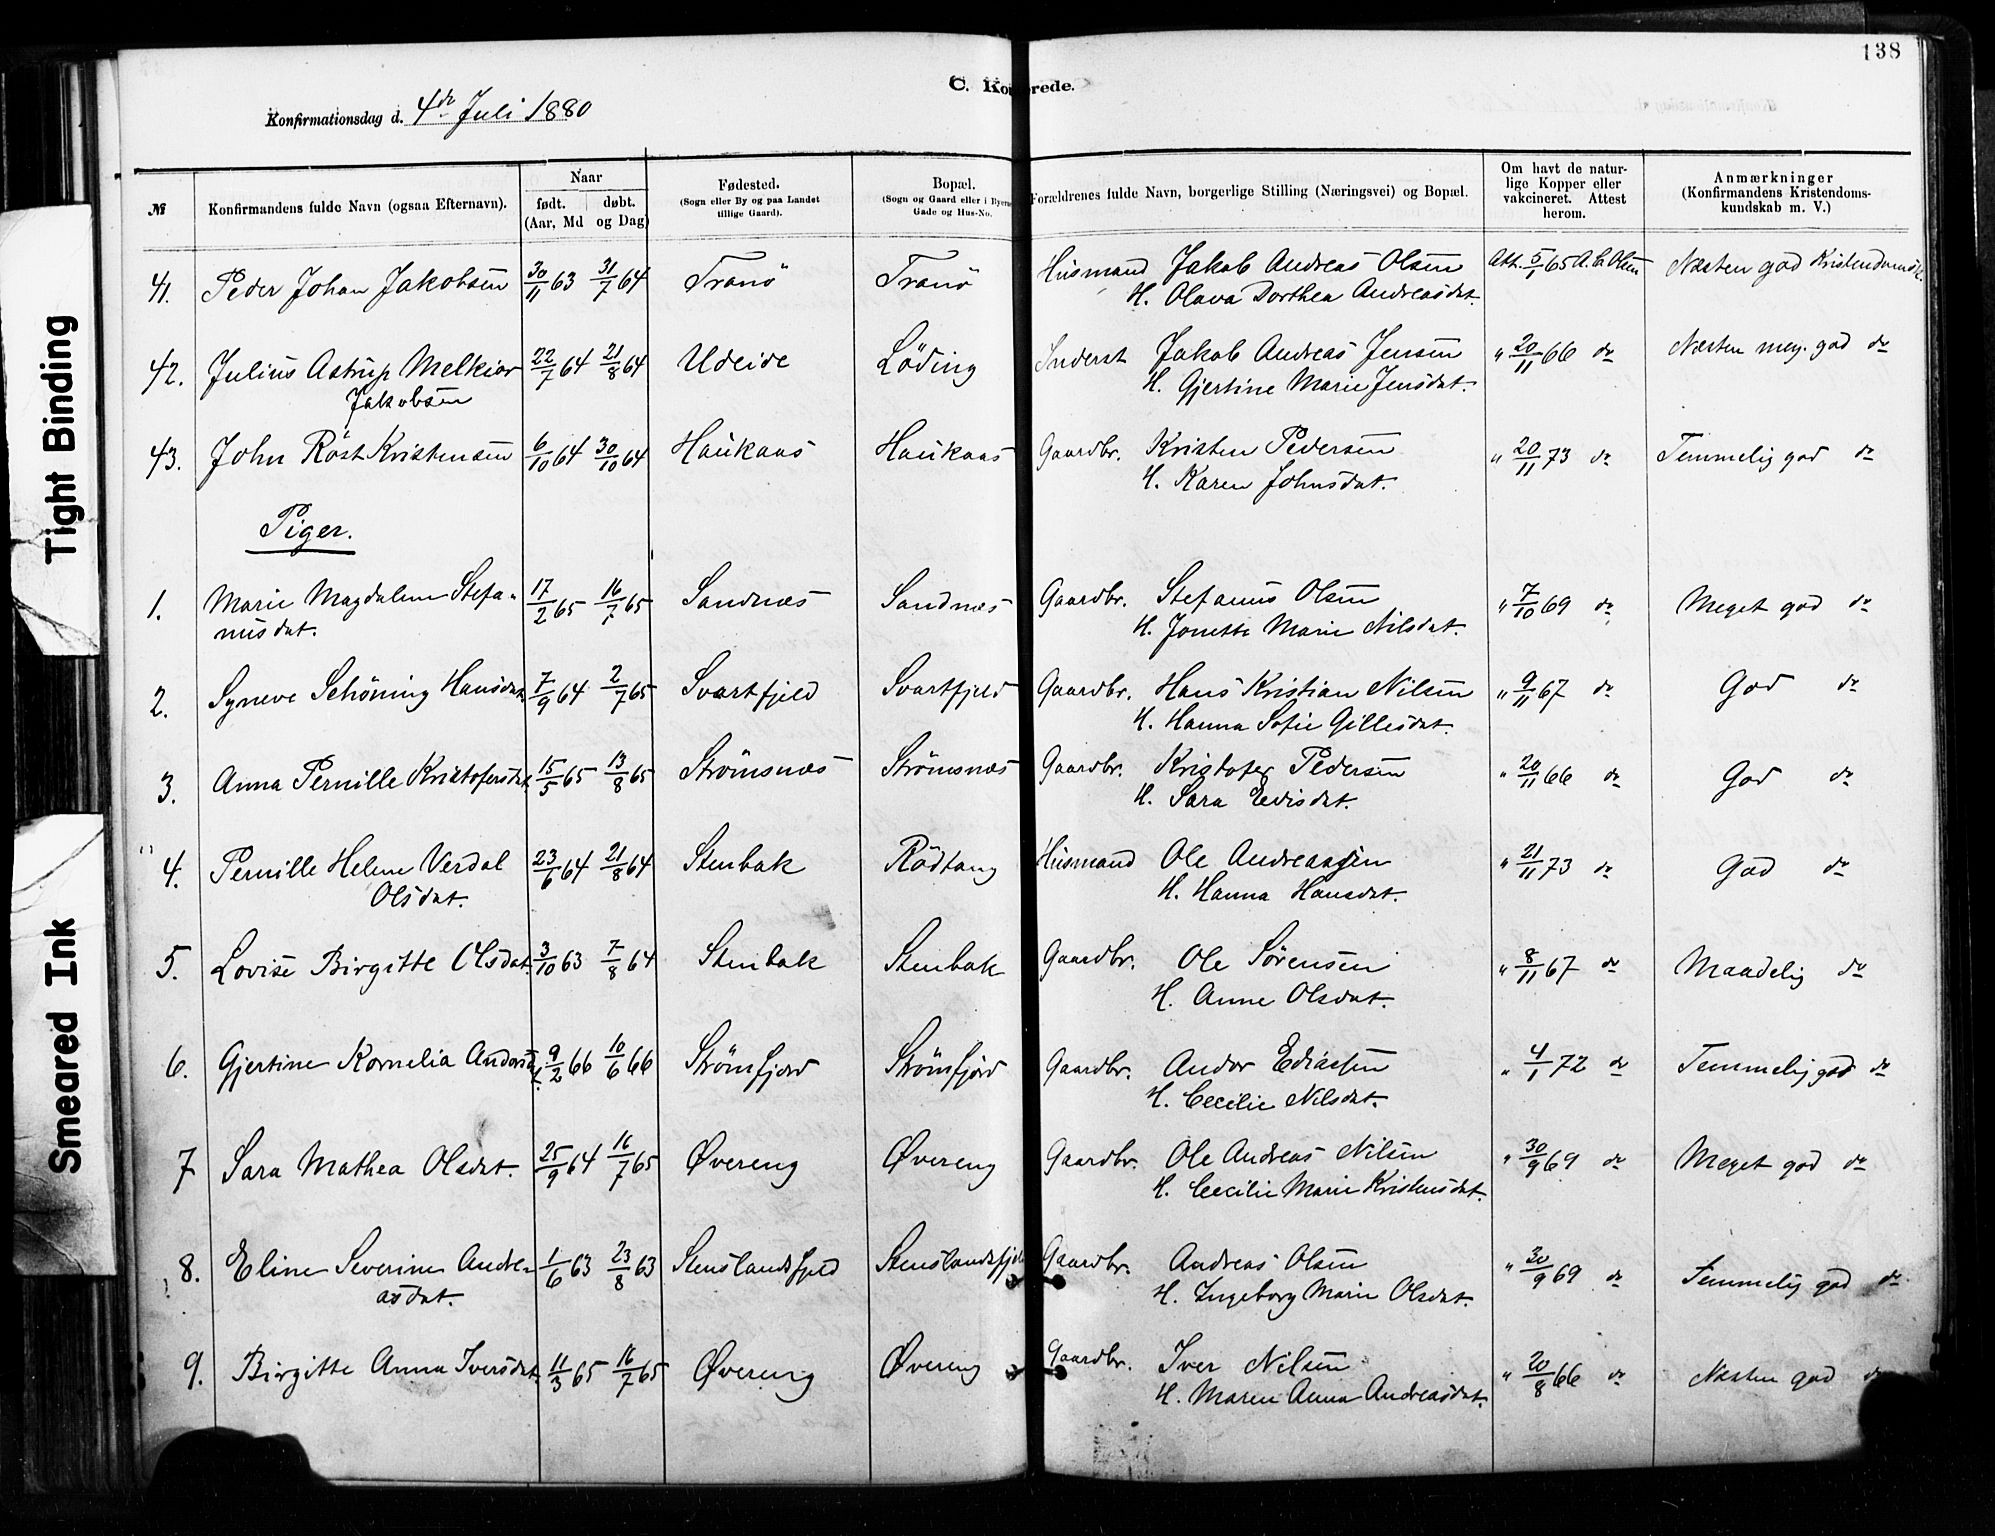 138
C. Ko rede.
Konfirmationsdag d. 4de Juli 1880
№ Konfirmandens fulde Navn (ogsaa Efternavn). Naar født. døbt. (Aar, Md og Dag) Fødested. (Sogn eller By og paa Landet tillige Gaard). Bopæl. (Sogn og Gaard eller i Byerne Gade og Hus-No. Forældrenes fulde Navn, borgerlige Stilling (Næringsvei) og Bopæl. Om havt de naturlige Kopper eller vakcineret. Attest herom. Anmærkninger (Konfirmandens Kristendomskundskab m. V.)
41. Peder Johan Jakobsen 30/11 63 31/7 64 Tranö Tranö Husmand Jakob Andreas Olsen Att. 5/1 65 A. C. Olsen Næsten god Kristendomsk.
H. Olava Dorthea Andreasdat.
42. Julius Astrup Melkior 22/7 64 21/8 64 Udeide Löding Inderst Jakob Andreas Jensen " 20/11 66 do Næsten meg. god do
Jakobsen H. Gjertine Marie Jensdat.
43. John Röst Kristensen 6/10 64 30/10 64 Haukaas Haukaas Gaardbr. Kristen Pedersen " 20/11 73 do Temmelig god do
H. Karen Johnsdat.
Piger.
1. Marie Magdalene Stefa- 17/2 65 16/7 65 Sandnæs Sandnæs Gaardbr. Stefanus Olsen " 7/10 69 do Meget god do
nusdat. H. Jonette Marie Nilsdat.
2. Syneve Schöning Hansdat. 7/9 64 2/7 65 Svartfjeld Svartfjeld Gaardbr. Hans Kristian Nilsen " 9/11 67 do God do
H. Hanna Sofie Gillesdat.
3. Anna Pernille Kristofersdat. 15/5 65 13/8 65 Strömsnæs Strömsnæs Gaardbr. Kristofer Pedersen " 20/11 66 do God do
H. Sara Edisdat.
4. Pernille Helene Verdal 23/6 64 21/8 64 Stenbak Rödtang Husmand Ole Andreassen " 21/11 73 do God do
Olsdat. H. Hanna Hansdat.
5. Lovise Birgitte Olsdat. 3/10 63 7/8 64 Stenbak Stenbak Gaardbr. Ole Sörensen " 8/11 67 do Maadelig do
H. Anne Olsdat.
6. Gjertine Kornelia Andorsdat. 9/2 66 10/6 66 Strömfjord Strömfjord Gaardbr. Andor Ediassen " 4/1 72 do Temmelig god do
H. Cecilie Nilsdat.
7 Sara Mathea Olsdat. 25/9 64 16/7 65 Øvereng Øvereng Gaardbr. Ole Andreas Nilsen " 30/9 69 do Meget god do
H. Cecilie Marie Kristensdat.
8. Eline Severine Andre- 1/6 63 23/8 63 Stenslandsfjeld Stenslandsfjeld Gaardbr. Andreas Olsen " 30/9 69 do Temmelig god do
asdat. H. Ingeborg Marie Olsdat.
9. Birgitte Anna Iversdat. 11/3 65 16/7 65 Øvereng Øvereng Gaardbr. Iver Nilsen " 20/8 66 do Næsten god do
H. Maren Anna Andreasdat.
Tight Binding
Smeared Ink